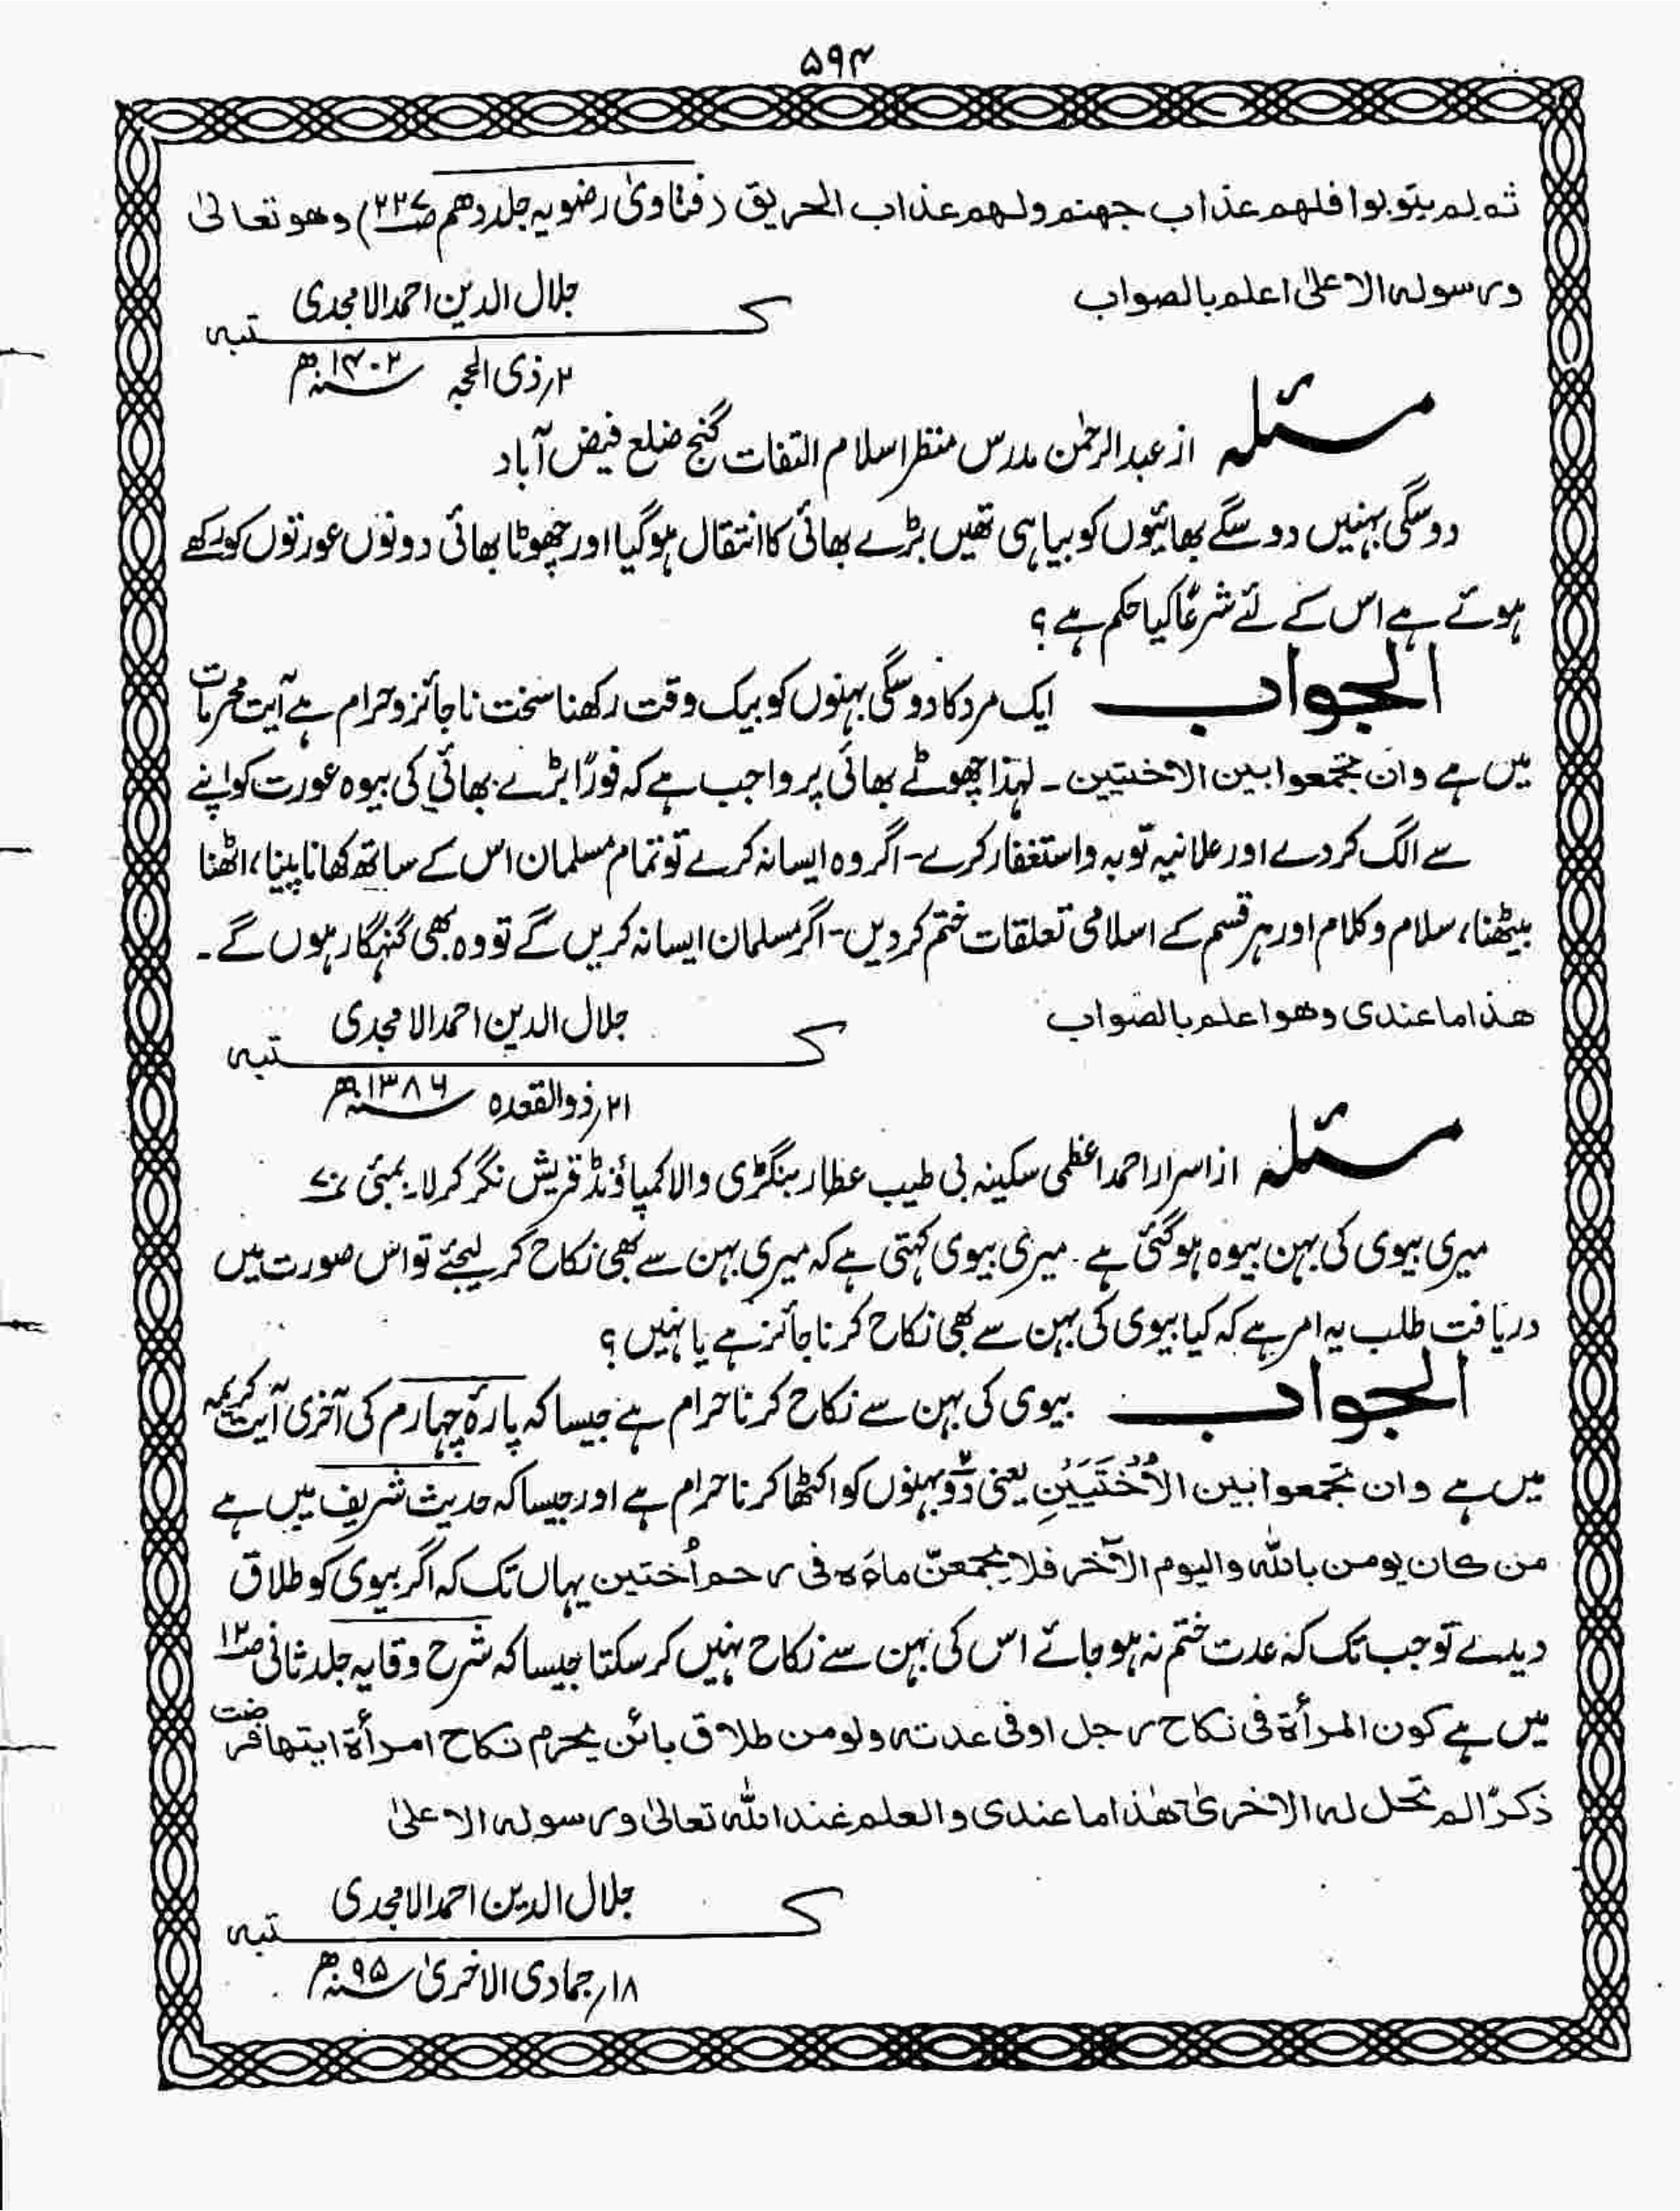 ۵۹۴
ثم لم یتوبوا فلهم عذاب جهنم ولهم عذاب الحریق (فتاویٰ رضویہ جلد دھم ص۲۲۷) وھو تعالیٰ
ورسولہ الاعلیٰ اعلم بالصواب
جلال الدین احمد الامجدی
کتبہ
۲؍ ذی الحجہ ۱۴۰۲ھ
مسئلہ از عبدالرحمٰن مدرس منظر اسلام التفات گنج ضلع فیض آباد
دو سگی بہنیں دو سگے بھائیوں کو بیاہی تھیں بڑے بھائی کا انتقال ہوگیا اور چھوٹا بھائی دونوں عورتوں کو رکھے
ہوئے ہے اس کے لئے شرعًا کیا حکم ہے؟
الجواب ایک مرد کا دو سگی بہنوں کو بیک وقت رکھنا سخت ناجائز و حرام ہے آیت محرمات
میں ہے وان تجمعوا بین الاختین۔ لہذا چھوٹے بھائی پر واجب ہے کہ فورًا بڑے بھائی کی بیوہ عورت کو اپنے
سے الگ کر دے اور علانیہ توبہ و استغفار کرے۔ اگر وہ ایسا نہ کرے تو تمام مسلمان اس کے ساتھ کھانا پینا، اٹھنا
بیٹھنا، سلام و کلام اور ہر قسم کے اسلامی تعلقات ختم کردیں۔ اگر مسلمان ایسا نہ کریں گے تو وہ بھی گنہگار ہوں گے۔
ھذا ماعندی وھو اعلم بالصواب
جلال الدین احمد الامجدی
کتبہ
۲۱؍ ذوالقعدہ ۱۳۸۶ھ
مسئلہ از اسرار احمد اعظمی سکینہ بی طیب عطار بنگڑی والا کمپاؤنڈ قریش نگر کرلا۔ بمبئی ۷۰
میری بیوی کی بہن بیوہ ہوگئی ہے۔ میری بیوی کہتی ہے کہ میری بہن سے بھی نکاح کر لیجئے تو اس صورت میں
دریافت طلب یہ امر ہے کہ کیا بیوی کی بہن سے بھی نکاح کرنا جائز ہے یا نہیں؟
الجواب بیوی کی بہن سے نکاح کرنا حرام ہے جیسا کہ پارۂ چہارم کی آخری آیت کریمہ
میں ہے وان تجمعوا بین الاُخْتَیَیْنِ یعنی دو بہنوں کو اکٹھا کرنا حرام ہے اور جیسا کہ حدیث شریف میں ہے
من کان یومن باللہ والیوم الآخر فلا یجمعنّ ماءَہ فی رحم اُختین یہاں تک کہ اگر بیوی کو طلاق
دیدے تو جب تک کہ عدت ختم نہ ہو جائے اس کی بہن سے نکاح نہیں کر سکتا جیسا کہ شرح وقایہ جلد ثانی ص۱۲
میں ہے کون المرأۃ فی نکاح رجل او فی عدتہ ولو من طلاق بائن یحرم نکاح امرأۃ ایتھا فرضت
ذکرًا لم تحل لہ الاخریٰ ھٰذا ماعندی والعلم عند اللہ تعالیٰ ورسولہ الاعلیٰ
جلال الدین احمد الامجدی
کتبہ
۱۸؍ جمادی الاخریٰ ۹۵ھ